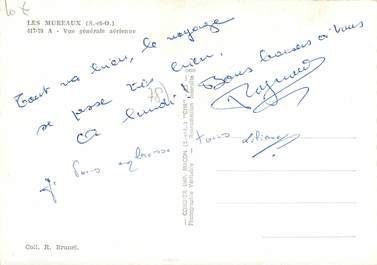 10 €
LES MUREAUX (S.-et-O.)
617-73 A - Vue générale aérienne
Tout va bien, le voyage
se passe très bien.
à lundi. Bons baisers à vous
Raymond
(78)
Je vous embrasse tous Liliane
COMBIER IMP. MACON (S.-&-L.) "CIM"
Photographie Véritable - Reproduction interdite
Coll. R. Brunel.